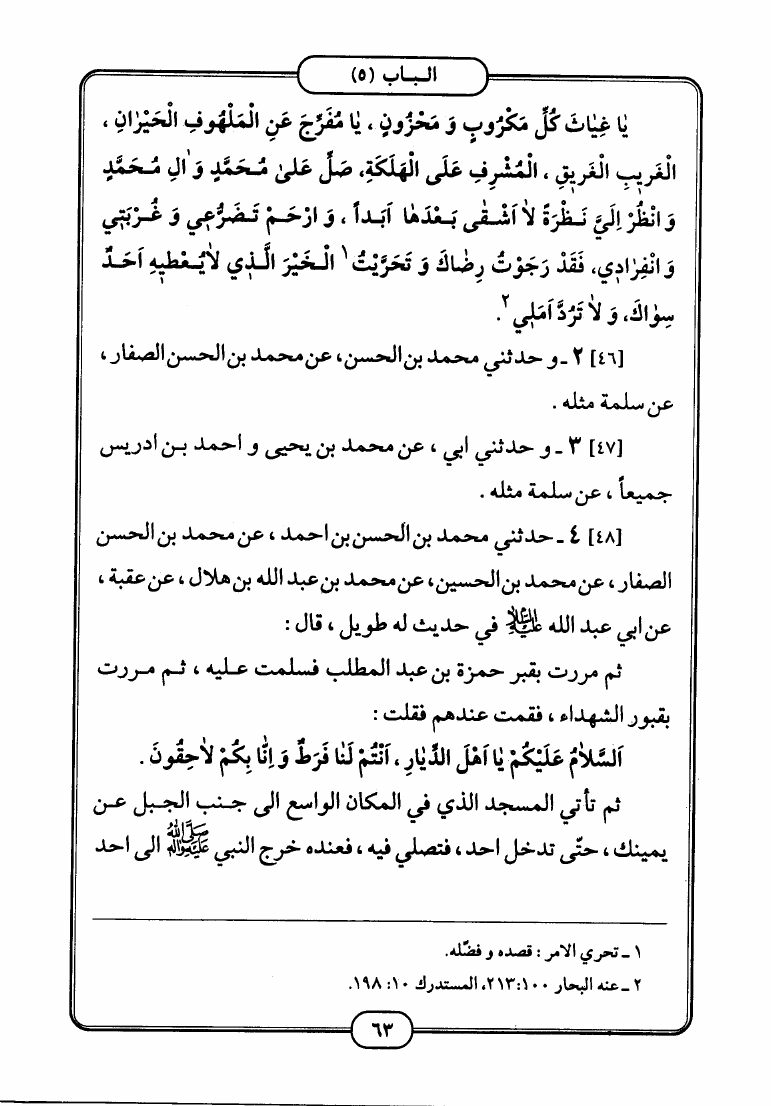 الـبـاب (٥)
يٰا غِيٰاثَ كُلِّ مَكْرُوبٍ وَ مَحْزُونٍ ، يٰا مُفَرِّجَ عَنِ الْمَلْهُوفِ الْحَيْرٰانِ ،
الْغَرِيبِ الْغَرِيقِ ، الْمُشْرِفِ عَلَى الْهَلَكَةِ، صَلِّ عَلىٰ مُحَمَّدٍ وَ اٰلِ مُحَمَّدٍ
وَ انْظُرْ اِلَيَّ نَـظْرَةً لاٰ اَشْـقٰى بَـعْدَهٰا اَبَـداً ، وَ ارْحَـمْ تَـضَرُّعِي وَ غُـرْبَتِي
وَ انْفِرٰادِي، فَقَدْ رَجَوْتُ رِضٰاكَ وَ تَحَرَّيْتُ ١ الْـخَيْرَ الَّـذِي لاٰيُـعْطِيهِ اَحَـدٌ
سِوٰاكَ، وَ لاٰ تَرُدَّ اَمَلِي ٢.
[٤٦] ٢ ـ و حدثني محمد بن الحسن، عن محمد بن الحسن الصفار ،
عن سلمة مثله .
[٤٧] ٣ ـ و حدثني ابي ، عن محمد بن يحيى و احمد بـن ادريس
جميعاً ، عن سلمة مثله .
[٤٨] ٤ ـ حدثني محمد بن الحسن بن احمد ، عن محمد بن الحسن
الصفار ، عن محمد بن الحسين، عن محمد بن عبد الله بن هلال ، عن عقبة ،
عن ابي عبد الله عليه السلام في حديث له طويل ، قال :
ثم مررت بقبر حمزة بن عبد المطلب فسلمت عـليه ، ثـم مـررت
بقبور الشهداء ، فقمت عندهم فقلت :
اَلسَّلاٰمُ عَلَيْكُمْ يٰا اَهْلَ الدِّيٰارِ ، اَنْتُمْ لَنٰا فَرَطٌ وَ اِنّٰا بِكُمْ لاٰحِقُونَ .
ثم تأتي المسجد الذي في المكان الواسع الى جـنب الجـبل عـن
يمينك ، حتّى تدخل احد ، فتصلي فيه ، فعنده خرج النبي ﷺ الى احد
١ ـ تحري الامر : قصده و فضّله.
٢ ـ عنه البحار ١٠٠:٢١٣، المستدرك ١٠: ١٩٨.
٦٣